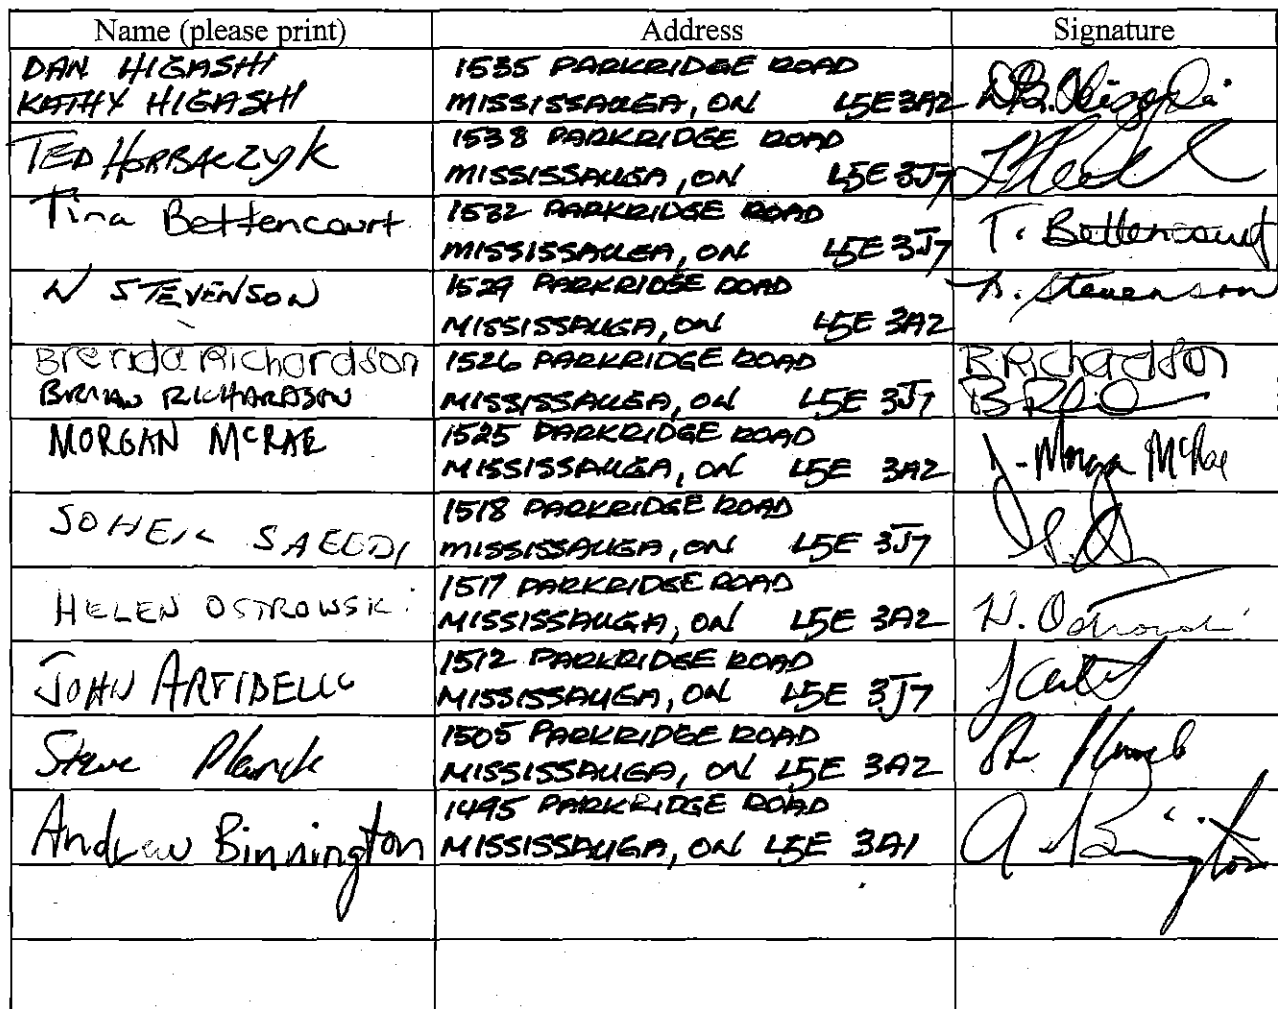 Name (please print) Address Signature
DAN HIGASHI 1535 PARKRIDGE ROAD
KATHY HIGASHI MISSISSAUGA, ON L5E 3A2
TED HORBACZYK 1538 PARKRIDGE ROAD
MISSISSAUGA, ON L5E 3J7
Tina Bettencourt 1532 PARKRIDGE ROAD T. Bettencourt
MISSISSAUGA, ON L5E 3J7
N STEVENSON 1529 PARKRIDGE ROAD N. Stevenson
MISSISSAUGA, ON L5E 3A2
Brenda Richardson 1526 PARKRIDGE ROAD B Richardson
BRIAN RICHARDSON MISSISSAUGA, ON L5E 3J7
MORGAN MCRAE 1525 PARKRIDGE ROAD
MISSISSAUGA, ON L5E 3A2 Morgan McRae
SOHEIL SAEEDI 1518 PARKRIDGE ROAD
MISSISSAUGA, ON L5E 3J7
HELEN OSTROWSKI 1517 PARKRIDGE ROAD
MISSISSAUGA, ON L5E 3A2 H. Ostrowski
JOHN ARTIBELLO 1512 PARKRIDGE ROAD
MISSISSAUGA, ON L5E 3J7
Steve Planck 1505 PARKRIDGE ROAD
MISSISSAUGA, ON L5E 3A2
Andrew Binnington 1495 PARKRIDGE ROAD
MISSISSAUGA, ON L5E 3A1 A Binnington